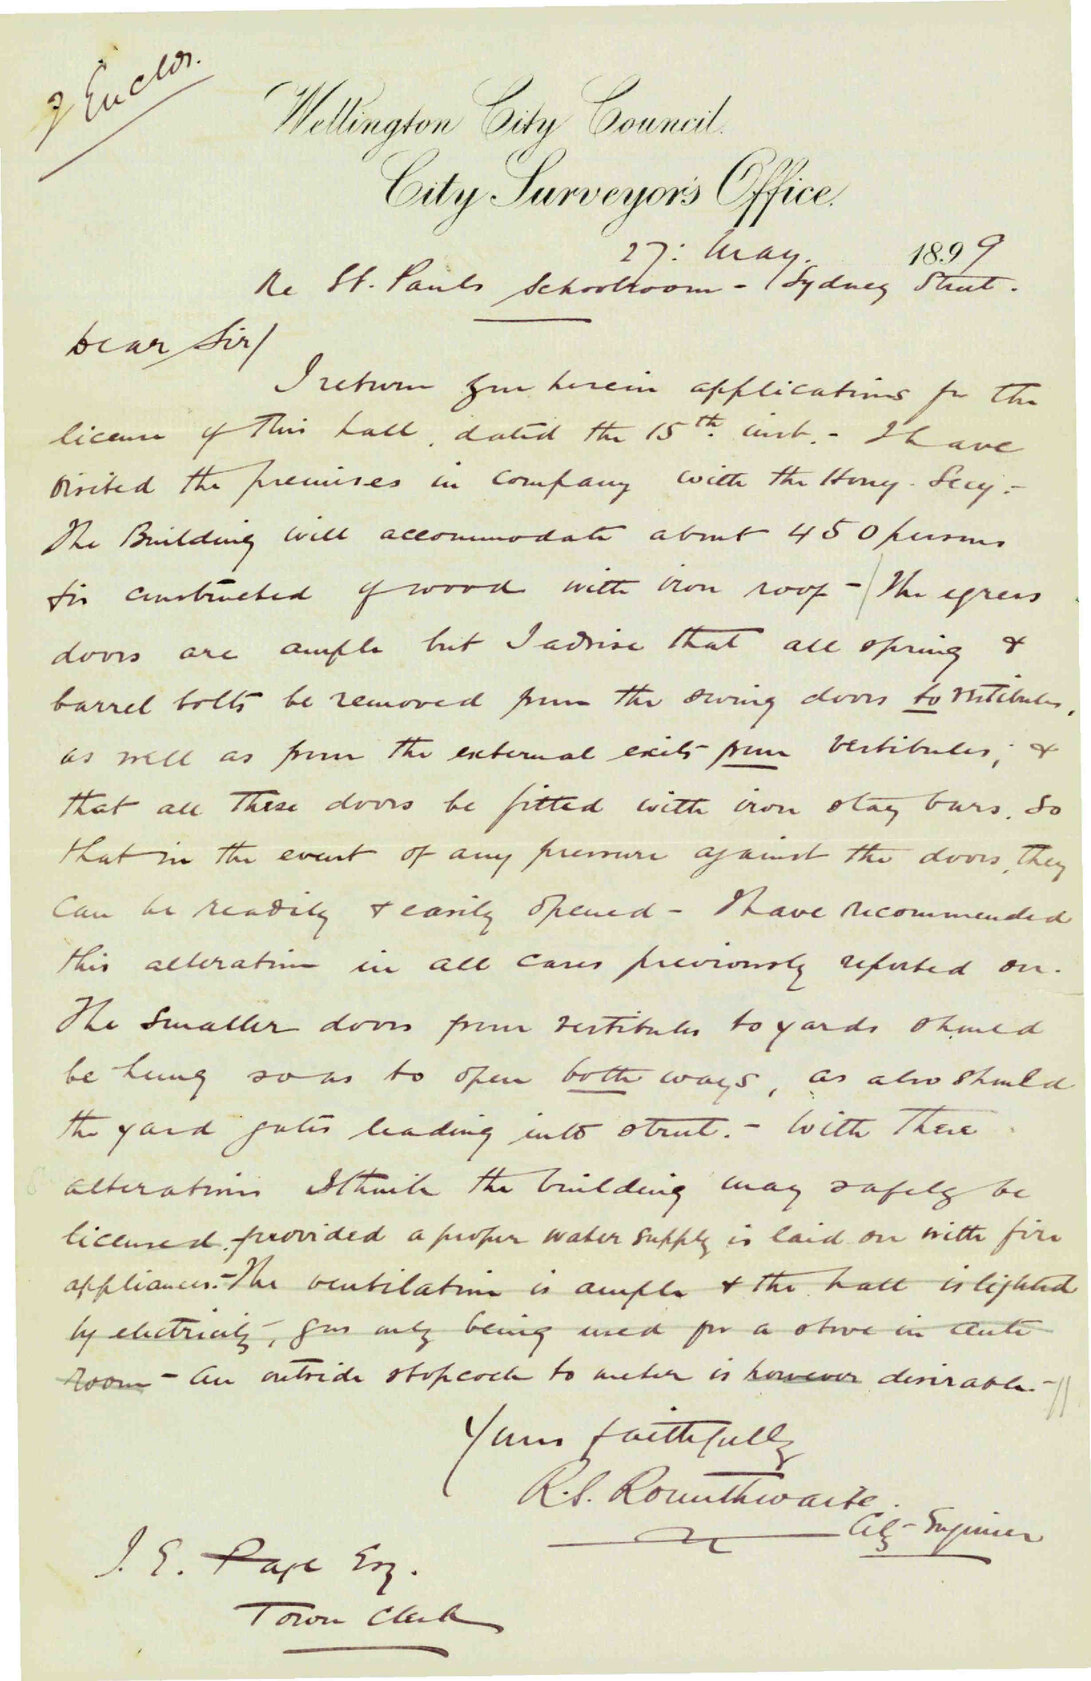 Enclos.
Wellington City Council.
City Surveyor's Office.
27: May. 1899
Re St. Pauls Schoolroom - Sydney Street.
Dear Sir/
I return you herein applications for the
license of this hall, dated the 15th. inst. - I have
visited the premises in company with the Hony. Secy. -
The Building will accommodate about 450 persons
& is constructed of wood with iron roof - The egress
doors are ample but I advise that all spring &
barrel bolts be removed from the swing doors to vestibules,
as well as from the external exits from vestibules; &
that all these doors be fitted with iron stay bars, so
that in the event of any pressure against the doors, they
can be readily & easily opened - I have recommended
this alteration in all cases previously reported on.
The smaller doors from vestibules to yards should
be hung so as to open both ways, as also should
the yard gates leading into street. - With these
alterations I think the building may safely be
licensed, provided a proper water supply is laid on with fire
appliances. - The ventilation is ample & the hall is lighted
by electricity, gas only being used for a stove in ante
room - An outside stopcock to meter is however desirable. -
Yours faithfully
R.S. Rounthwaite.
City Engineer
J. E. Page Esq.
Town Clerk